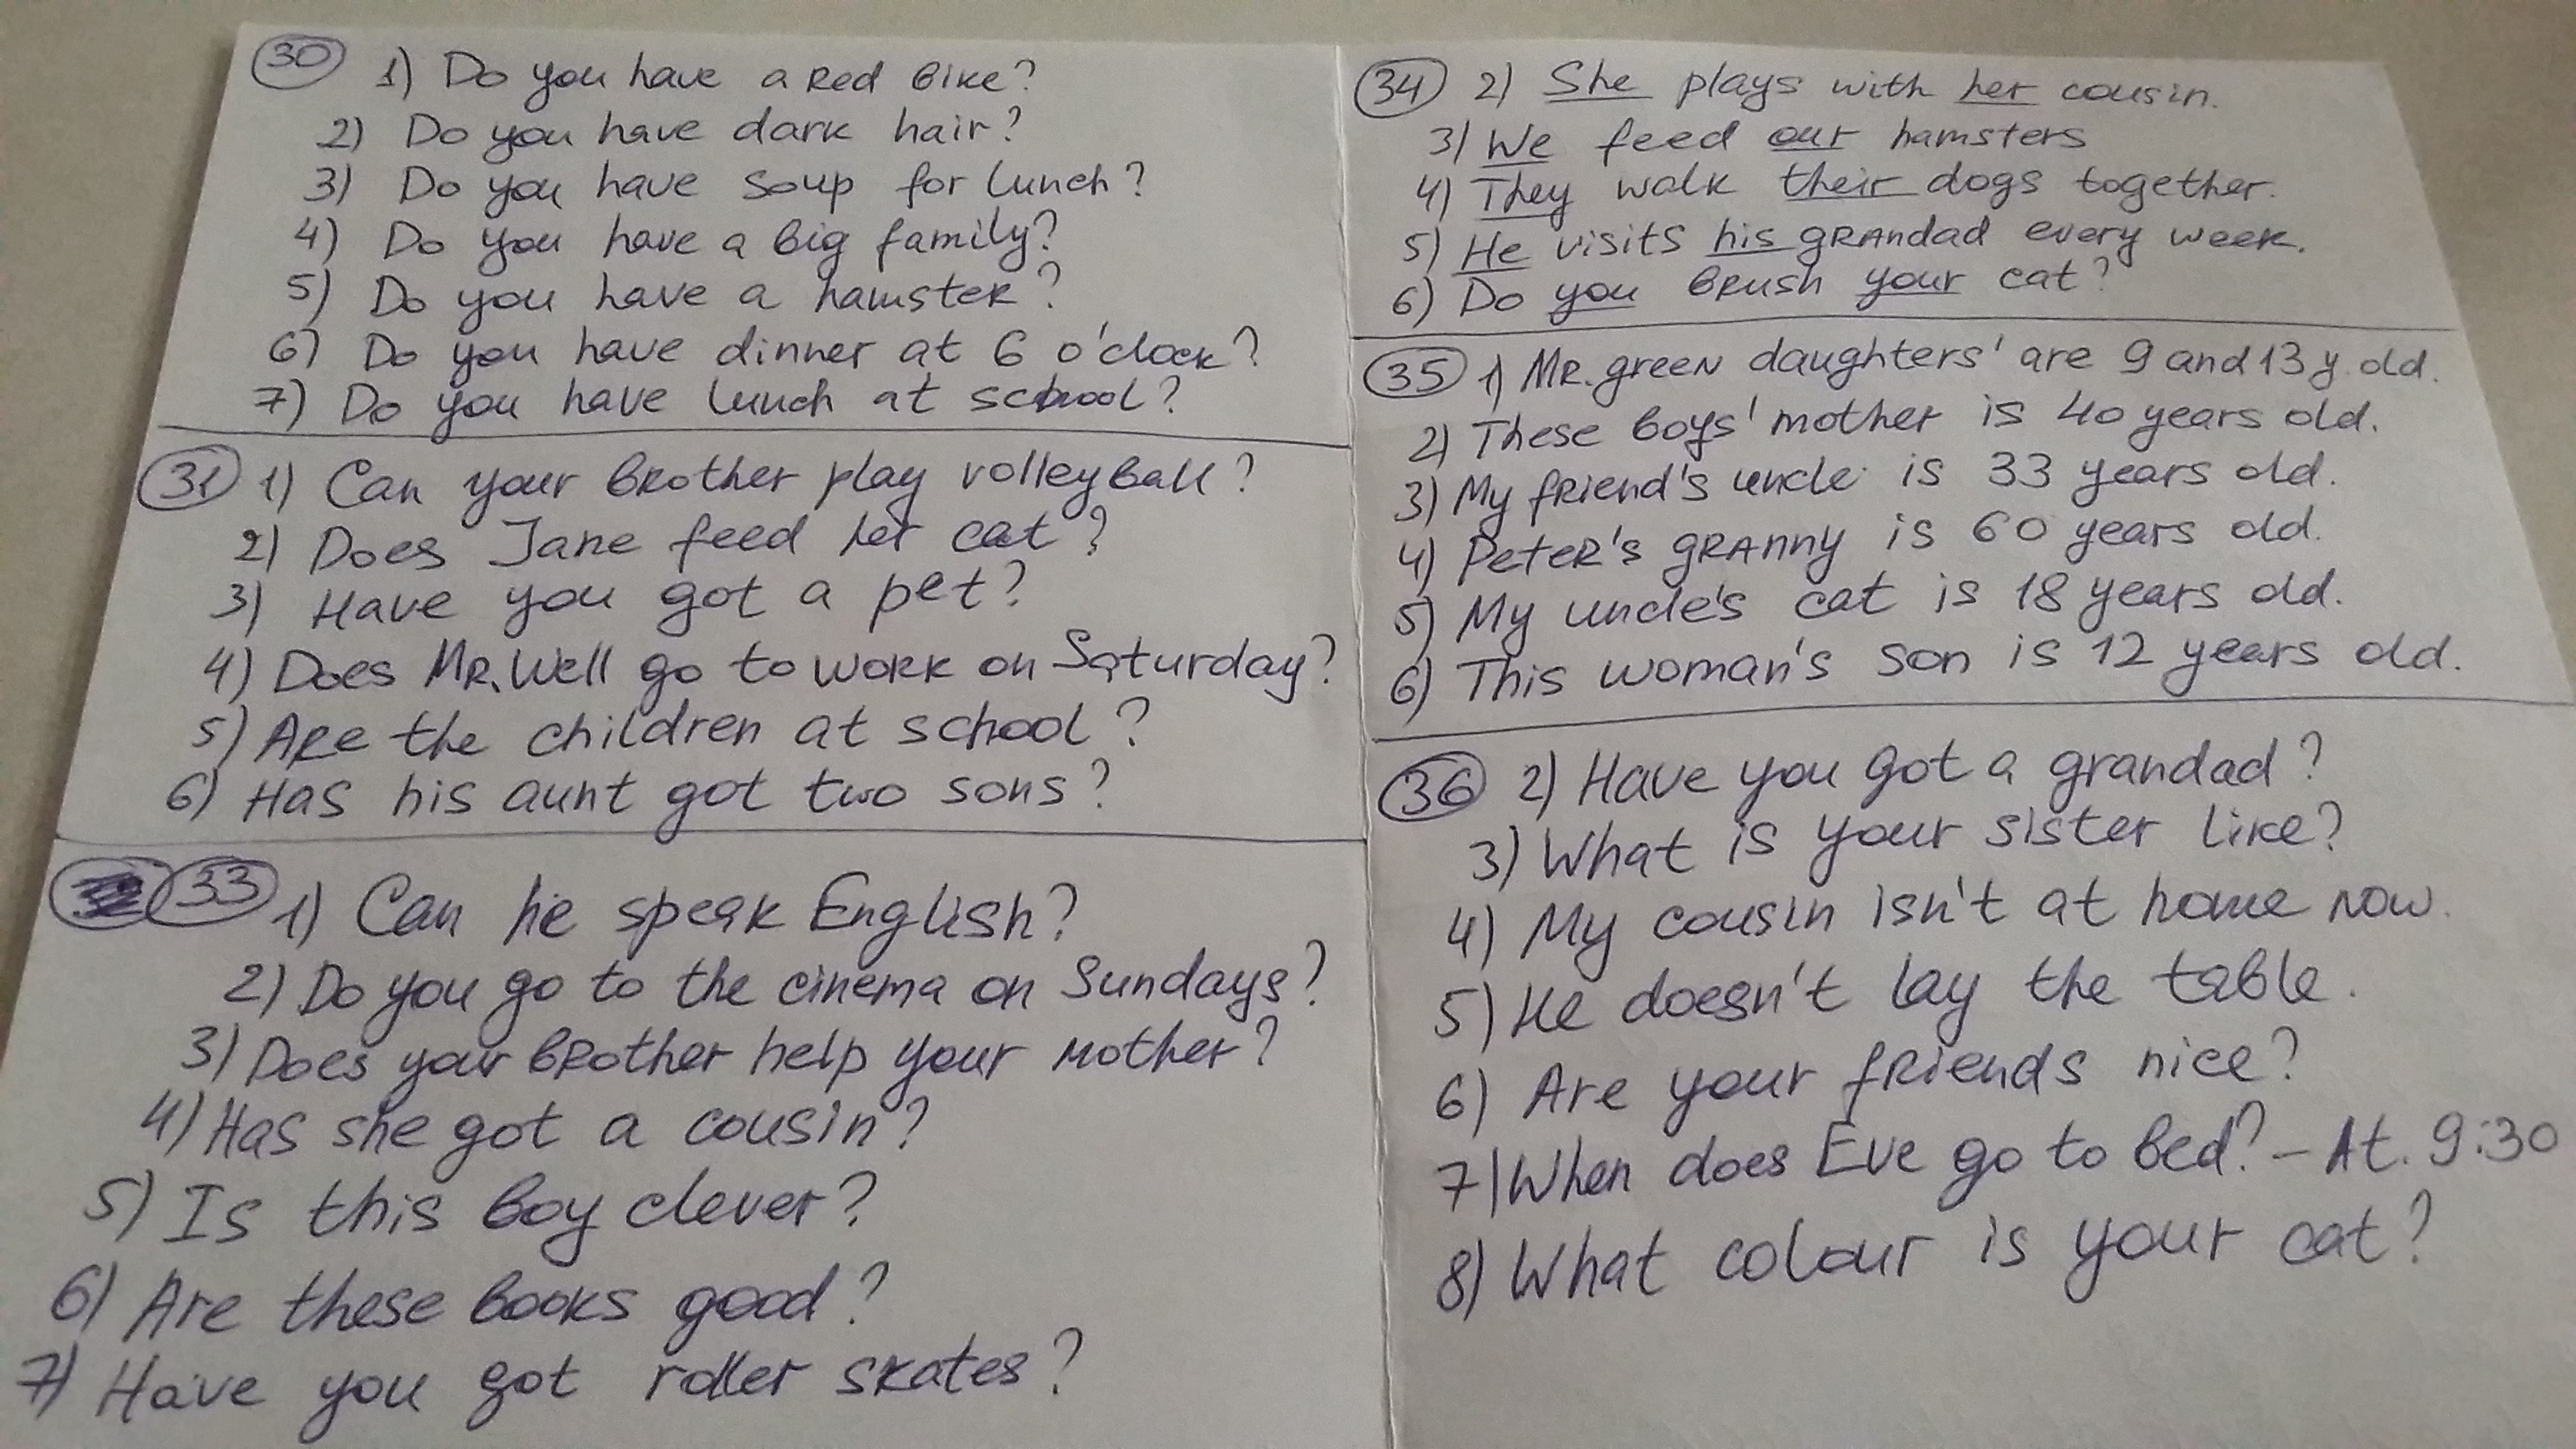 30 1) Do you have a red bike?
2) Do you have dark hair?
3) Do you have soup for lunch?
4) Do you have a big family?
5) Do you have a hamster?
6) Do you have dinner at 6 o'clock?
7) Do you have lunch at school?
31 1) Can your brother play volleyball?
2) Does Jane feed her cat?
3) Have you got a pet?
4) Does Mr. Well go to work on Saturday?
5) Are the children at school?
6) Has his aunt got two sons?
33 1) Can he speak English?
2) Do you go to the cinema on Sundays?
3) Does your brother help your mother?
4) Has she got a cousin?
5) Is this boy clever?
6) Are these books good?
7) Have you got roller skates?
34 2) She plays with her cousin.
3) We feed our hamsters
4) They walk their dogs together.
5) He visits his grandad every week.
6) Do you brush your cat?
35 1) Mr. green daughters' are 9 and 13 y. old.
2) These boys' mother is 40 years old.
3) My friend's uncle is 33 years old.
4) Peter's granny is 60 years old.
5) My uncle's cat is 18 years old.
6) This woman's son is 12 years old.
36 2) Have you got a grandad?
3) What is your sister like?
4) My cousin isn't at home now.
5) He doesn't lay the table.
6) Are your friends nice?
7) When does Eve go to bed? – At. 9:30
8) What colour is your cat?